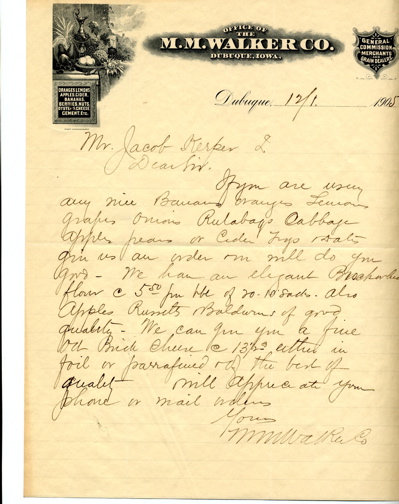 OFFICE OF
THE
M.M. WALKER CO.
DUBUQUE, IOWA.
GENERAL
COMMISSION
MERCHANTS
GRAIN DEALERS
ORANGES, LEMONS,
APPLES, CIDER,
BANANAS,
BERRIES, NUTS,
OYSTERS, CHEESE,
CEMENT, ETC.
Dubuque, 12/1 1905
Mr. Jacob Kerper
Dear Sir.
If you are using
any nice Bananas oranges Lemons
grapes Onions Rutabags Cabbage
Apples pears or Cider Figs Dates
give us an order we will do you
good - We have an elegant Buckwheat
flour @ 5.50 per bbl of 20-10 sacks. also
Apples Russetts Baldwins of good
quality - We can give you a fine
Brick Cheese @ 13½ either in
foil or parrafined the best of
qualet will Appreciate your
phone or mail orders
Yours
M M Walker Co